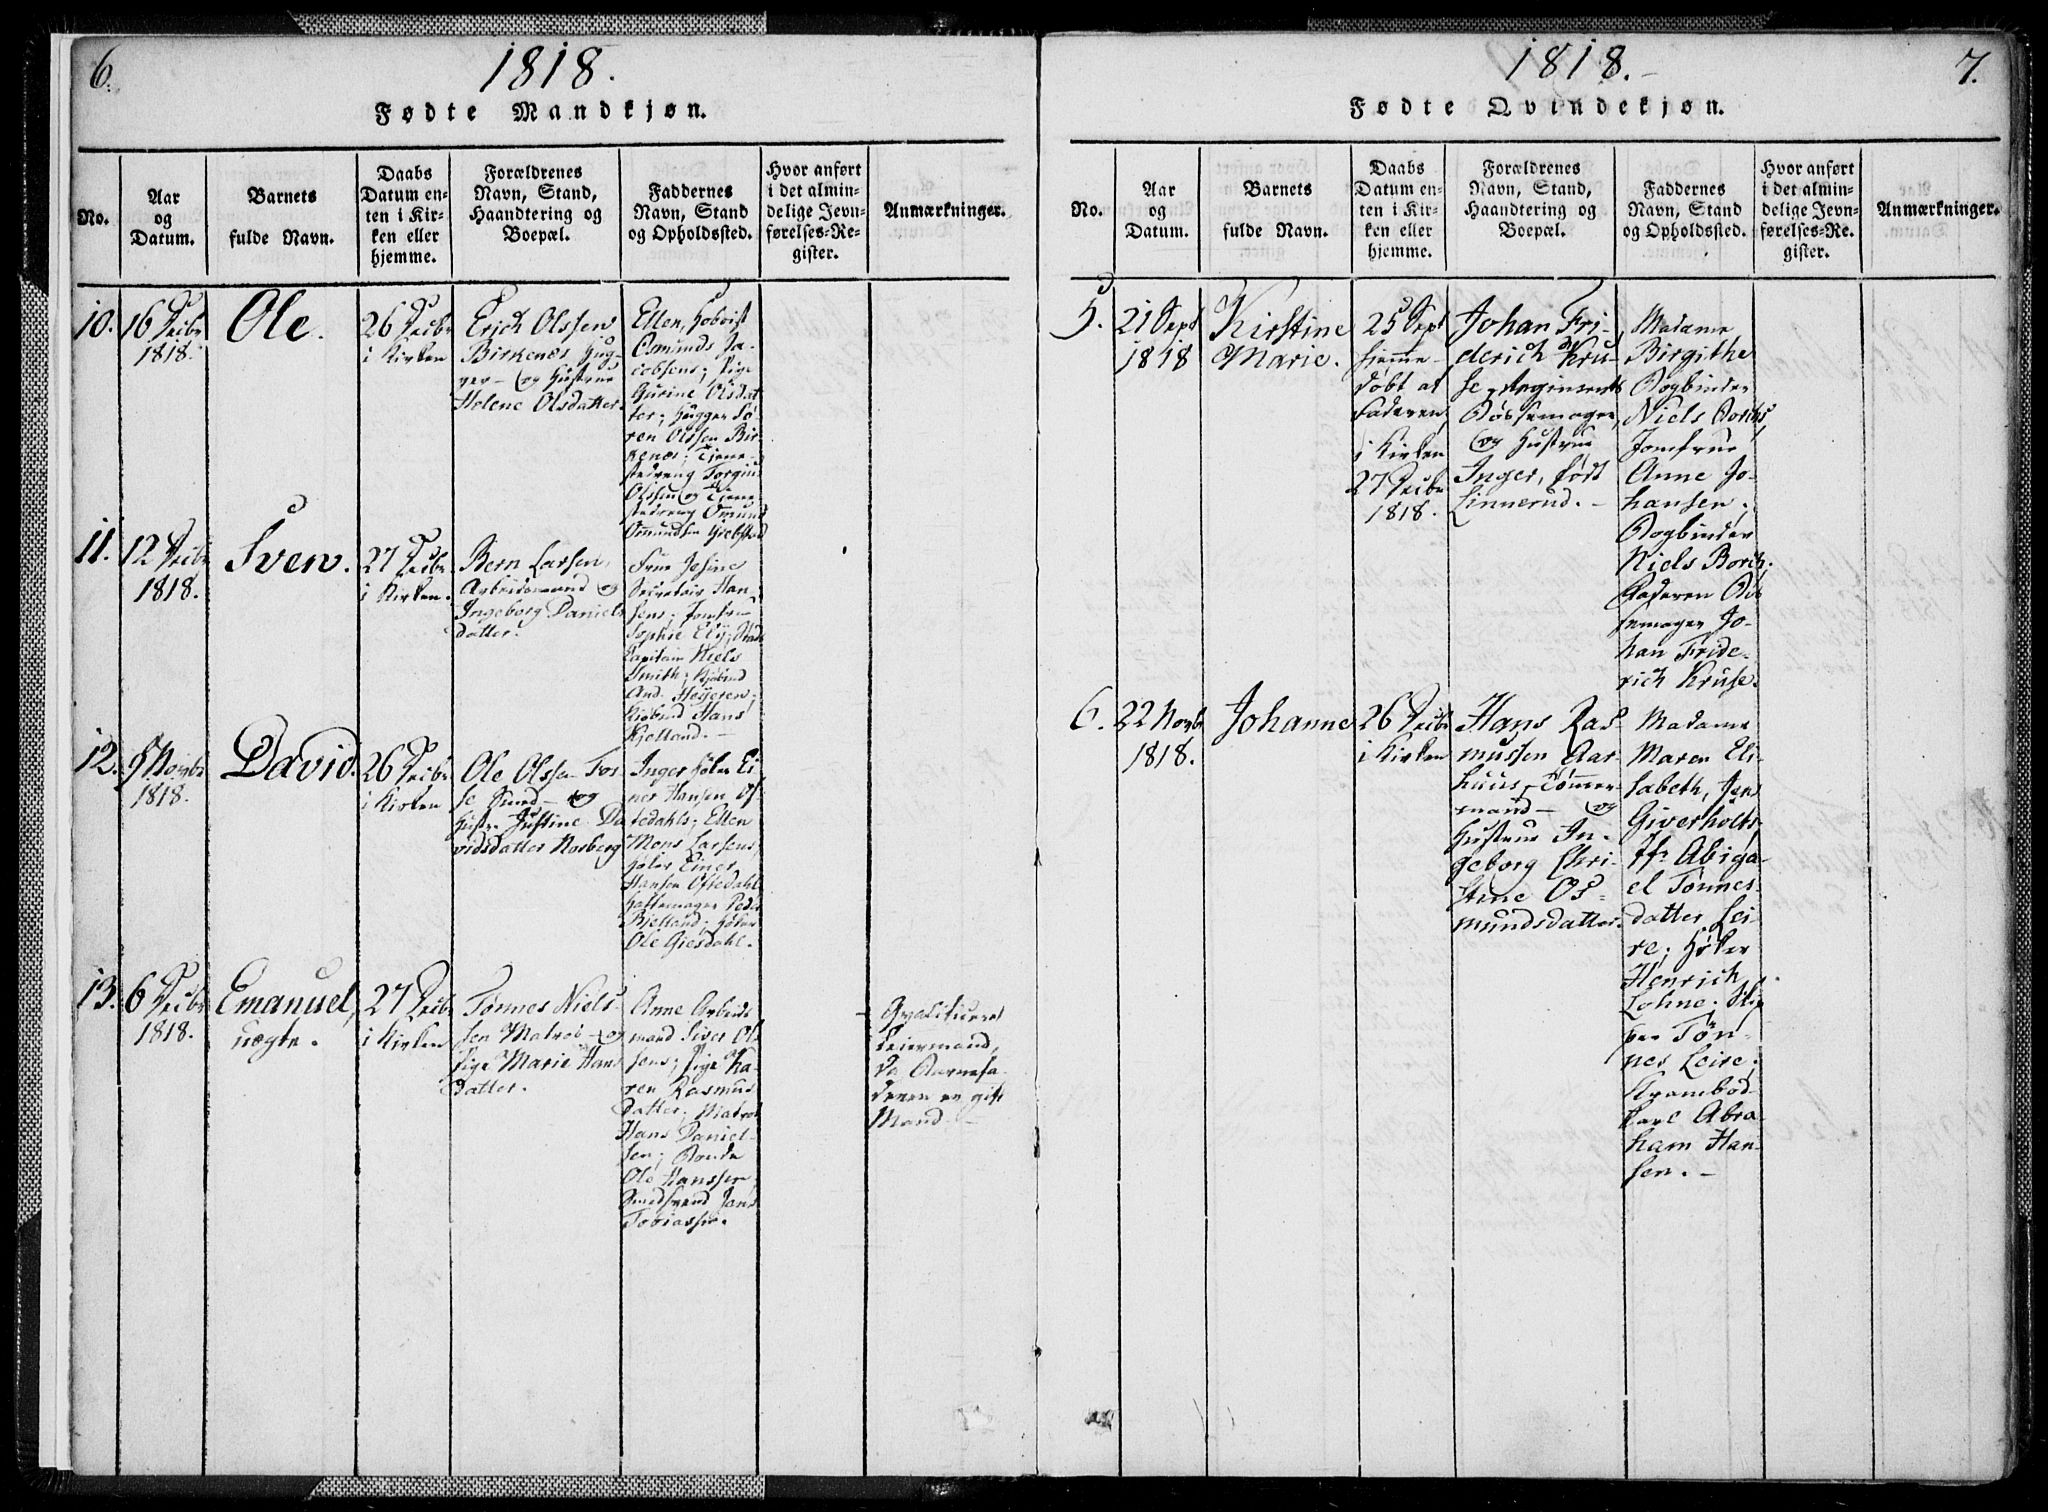 6.
1818.
Fødte Mandkjøn.
No.
Aar
og
Datum.
Barnets
fulde Navn.
Daabs
Datum en-
ten i Kir-
ken eller
hjemme.
Forældrenes
Navn, Stand,
Haandtering og
Boepæl.
Faddernes
Navn, Stand
og Opholdssted.
Hvor anført
i det almin-
delige Jevn-
førelses-Re-
gister.
Anmærkninger.
10.
16 Decbr
1818.
Ole.
26 Decbr
i Kirken
Erich Olssen
Birkenæs Hug-
ger - og Hustrue
Helene Olsdatter.
Ellen, Hoboist
Osmunds Ja-
cobsens; Pige
Gurine Olsdat
ter; Hugger Sø-
ren Olssen Bir-
kenæs; Tjene-
stedreng
Olssen og Tjene-
stedreng Omund
Omundsen
11.
12 Decbr
1818.
Sven.
27 Decbr
i Kirken.
Bern Larsen,
Arbeidsmand og
Ingeborg Daniels
datter.
Frue Jesine
Secretair Han-
sens; Jomfrue
Sophie
Capitain Niels
Smith; Kjøbmd
And.
Kjøbmd Hans
Kjelland. -
12.
9 Novbr
1818.
David.
26 Decbr
i Kirken
Ole Olssen Fos-
se Smed - og
Hustr. Justine Da
vidsdatter Norberg
Inger Høker Ei-
ner Hansen Of-
tedahls; Ellen
Mons Larsens,
Høker Einer
Hansen Oftedahl
Hattemager Peder
Bjelland; Høker
Ole Giesdahl.
13.
6 Decbr
1818.
Emanuel,
uægte.
27 Decbr
i Kirken
Tønnes Niels-
sen Matros - og
Pige Marie Hans
datter.
Anne Arbeids
mand Siver Ol
sens; Pige Ka-
ren Rasmus
datter; Matros
Hans Daniel-
sen; Bonde
Ole Hanssen
Smedsvend Jens
Tobiassen.
Qvalificeret
Leiermaal,
da Barnefa-
deren er gift
Mand. -
1818.-
7.
Fødte Qvindekjøn.
No.
Aar
og
Datum.
Barnets
fulde Navn.
Daabs
Datum en-
ten i Kir-
ken eller
hjemme.
Forældrenes
Navn, Stand,
Haandtering og
Boepæl.
Faddernes
Navn, Stand
og Opholdssted.
Hvor anført
i det almin-
delige Jevn-
førelses-Re-
gister.
Anmærkninger.
5.
21 Sept
1818
Kirstine
Marie.
25 Sept
hjemme-
døbt af
Faderen,
i Kirken
27 Decbr
1818.
Johan Fri-
derich Kru-
se, Regiments
Bøssemager,
og Hustrue
Inger, født
Linnerud. -
Madame
Birgithe
Bogbinder
Niels Borchs
Jomfrue
Anne Jo-
hansen;
Bogbinder
Niels Borch.
Faderen Bøs
semager Jo-
han Fride-
rich Kruse.
6.
22 Novbr
1818.
Johanne
26 Decbr
i Kirken
Hans Ras-
mussen Aar-
huus, Tømmer-
mand - og
Hustrue In-
geborg Chri-
stine Os-
mundsdatter.
Madame
Maren Eli-
sabeth, Jens
Giverholts,
Jfr Abiga-
el Tønnes-
datter Lei-
re; Høker
Henrich
Lohne; Skip
per Tøn-
nes Leire;
Krambod-
karl Abra-
ham Han-
sen. -